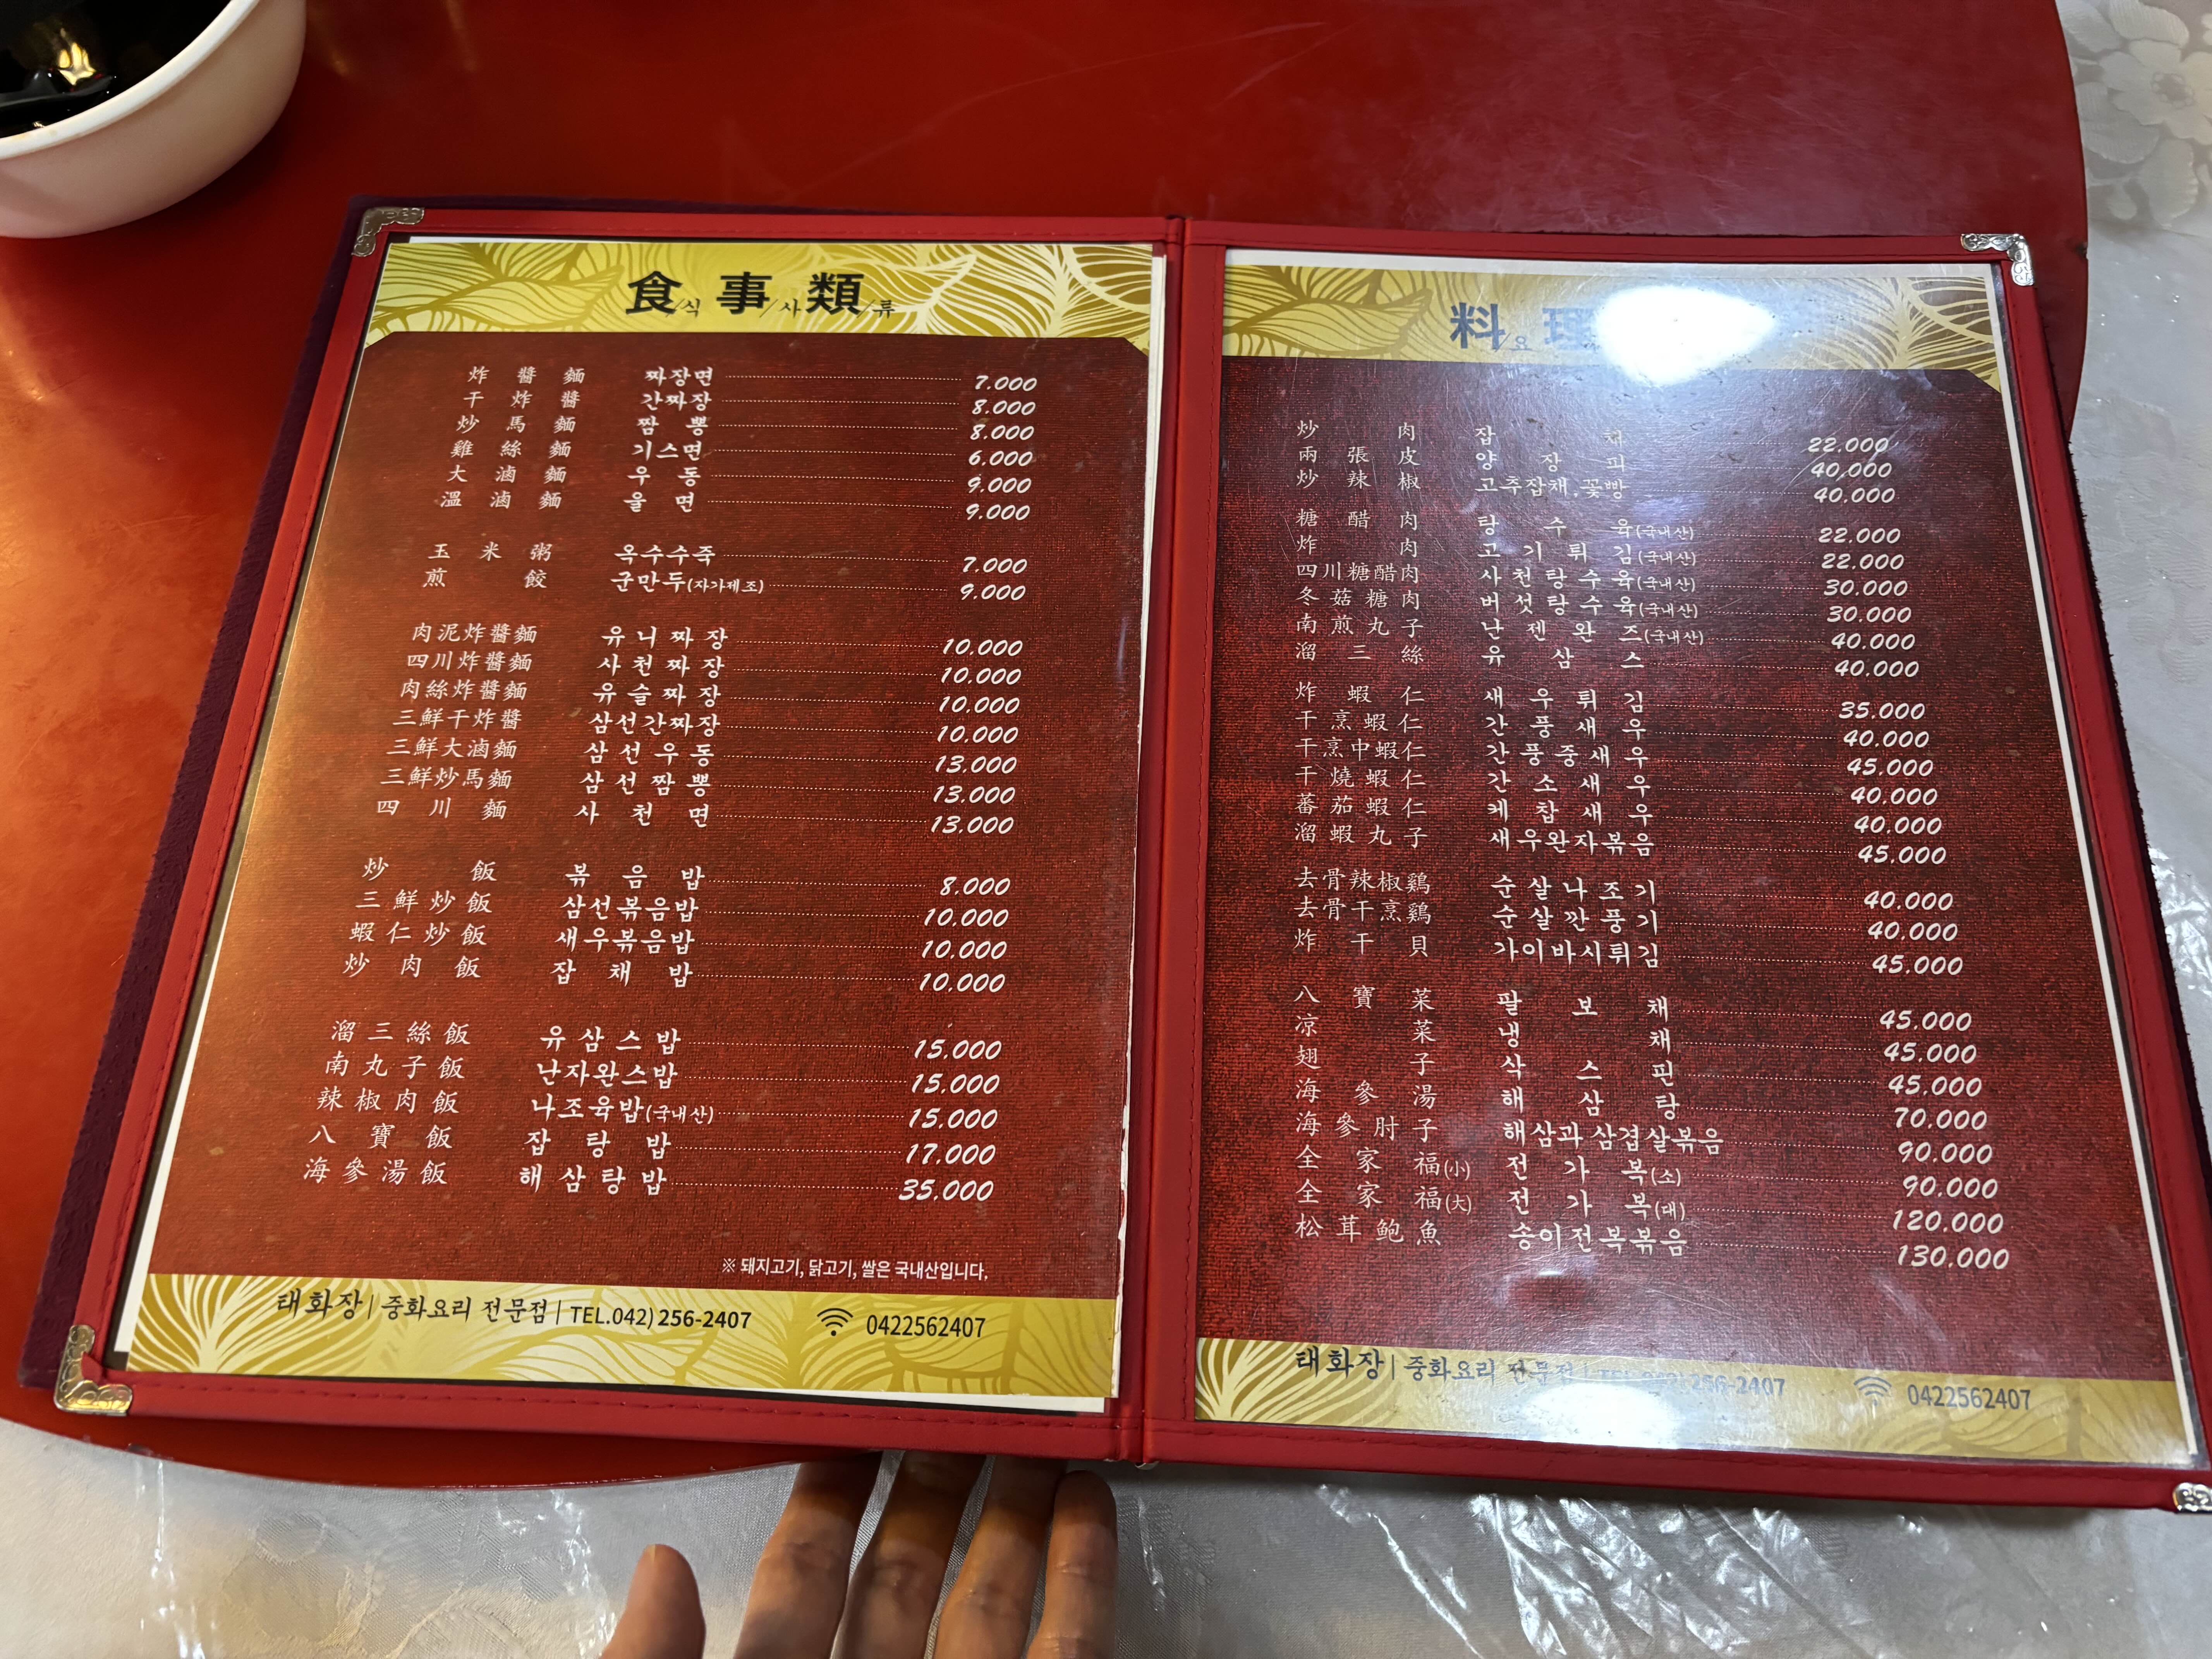 食/식 事/사 類/류
炸醬麵 짜장면 7.000
干炸醬 간짜장 8.000
炒馬麵 짬뽕 8.000
雞絲麵 기스면 6.000
大滷麵 우동 9.000
溫滷麵 울면 9.000
玉米粥 옥수수죽 7.000
煎餃 군만두(자가제조) 9.000
肉泥炸醬麵 유니짜장 10.000
四川炸醬麵 사천짜장 10.000
肉絲炸醬麵 유슬짜장 10.000
三鮮干炸醬 삼선간짜장 10.000
三鮮大滷麵 삼선우동 13.000
三鮮炒馬麵 삼선짬뽕 13.000
四川麵 사천면 13.000
炒飯 볶음밥 8.000
三鮮炒飯 삼선볶음밥 10.000
蝦仁炒飯 새우볶음밥 10.000
炒肉飯 잡채밥 10.000
溜三絲飯 유삼스밥 15.000
南丸子飯 난자완스밥 15.000
辣椒肉飯 나조육밥(국내산) 15.000
八寶飯 잡탕밥 17.000
海參湯飯 해삼탕밥 35.000
※ 돼지고기, 닭고기, 쌀은 국내산입니다.
태화장 | 중화요리 전문점 | TEL.042) 256-2407 0422562407
料/요 理
炒肉 잡채 22.000
兩張皮 양장피 40.000
炒辣椒 고추잡채,꽃빵 40.000
糖醋肉 탕수육(국내산) 22.000
炸肉 고기튀김(국내산) 22.000
四川糖醋肉 사천탕수육(국내산) 30.000
冬菇糖肉 버섯탕수육(국내산) 30.000
南煎丸子 난젠완즈(국내산) 40.000
溜三絲 유삼스 40.000
炸蝦仁 새우튀김 35.000
干烹蝦仁 간풍새우 40.000
干烹中蝦仁 간풍중새우 45.000
干燒蝦仁 간소새우 40.000
蕃茄蝦仁 케찹새우 40.000
溜蝦丸子 새우완자볶음 45.000
去骨辣椒鷄 순살나조기 40.000
去骨干烹鷄 순살깐풍기 40.000
炸干貝 가이바시튀김 45.000
八寶菜 팔보채 45.000
凉菜 냉채 45.000
翅子 삭스핀 45.000
海參湯 해삼탕 70.000
海參肘子 해삼과삼겹살볶음 90.000
全家福(小) 전가복(소) 90.000
全家福(大) 전가복(대) 120.000
松茸鮑魚 송이전복볶음 130.000
태화장 | 중화요리 전문점 | TEL.042) 256-2407 0422562407